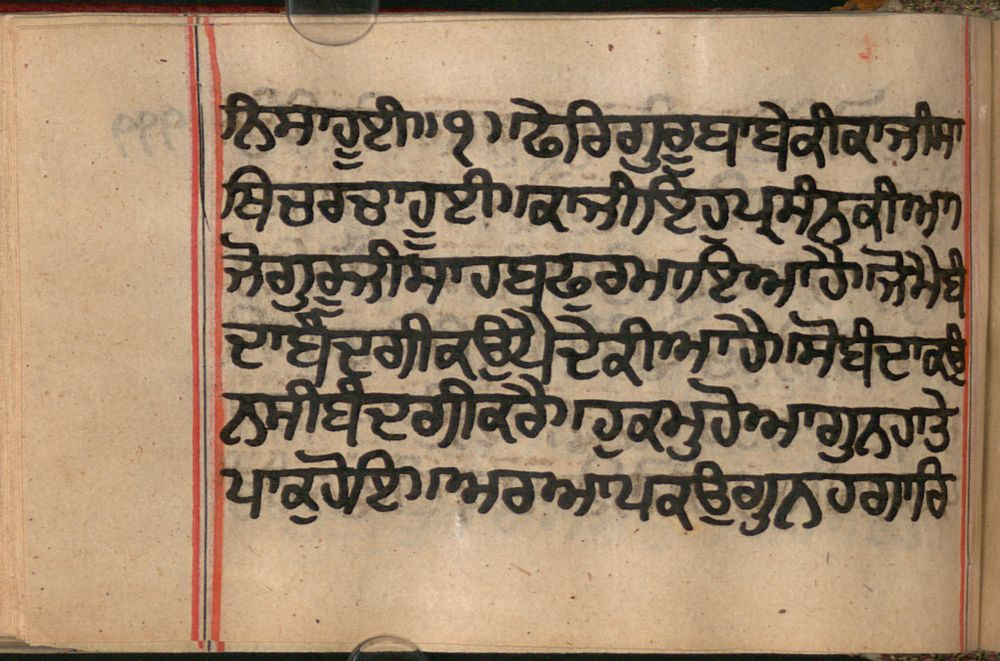 ਨਿਸਾਹੂਈ॥੧॥ਫੇਰਿਗੁਰੂਬਾਬੇਕੀਕਾਜੀਸਾ
ਥਿਚਰਚਾਹੂਈ॥ਕਾਜੀਇਹੁਪ੍ਰਸੰਨਕੀਆ॥
ਜੋਗੁਰੂਜੀਸਾਹਬਫੁਰਮਾਇਆਹੈ॥ਜੋਮੈਬੰ
ਦਾਬੰਦਗੀਕਉਪੈਦੇਕੀਆਹੈ॥ਸੋਬੰਦਾਕਉ
ਨਸੀਬੰਦਗੀਕਰੈ॥ਹੁਕਮੁਹੋਆਗੁਨਹਾਤੇ
ਪਾਕੁਹੋਇ॥ਅਰਆਪਕਉਗੁਨਹਗਾਰਿ